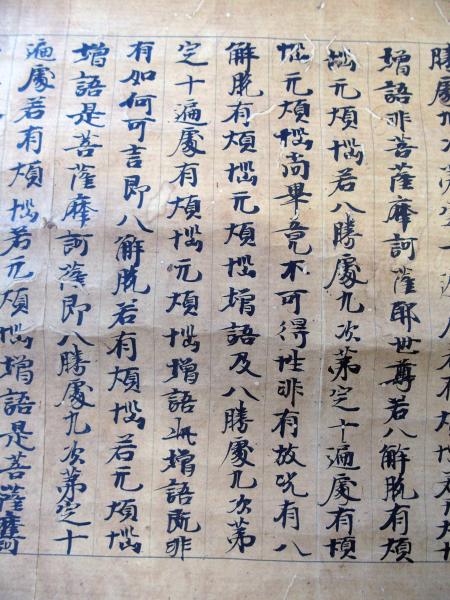 勝處九次第定十遍處若有煩惱若无煩
增語非菩薩摩訶薩耶世尊若八解脫有煩
惱无煩惱若八勝處九次第定十遍處有煩
惱无煩惱尚畢竟不可得性非有故況有八
解脫有煩惱无煩惱增語及八勝處九次第
定十遍處有煩惱无煩惱增語此增語既非
有如何可言即八解脫若有煩惱若无煩惱
增語是菩薩摩訶薩即八勝處九次第定十
遍處若有煩惱若无煩惱增語是菩薩摩訶